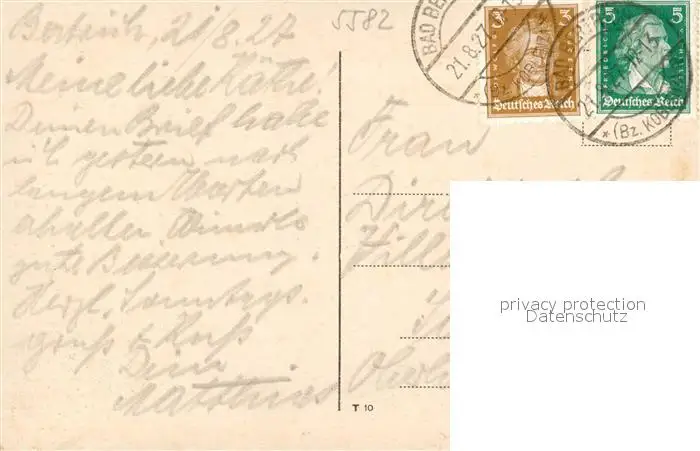 Bertrich, 21/8.27
5582
Meine liebe Käthe!
Deinen Brief habe
ich gestern nach
langem Warten
erhalten
gute Besserung.
Herzl. Sonntags-
gruß & Kuß
Dein
Matthias
BAD BE
21.8.27
*(Bz. KOBLENZ)
3 3
Deutsches Reich
5 5
FRIEDRICH
Deutsches Reich
21.8
*(Bz. KOB
Frau
Dire
T 10
privacy protection
Datenschutz